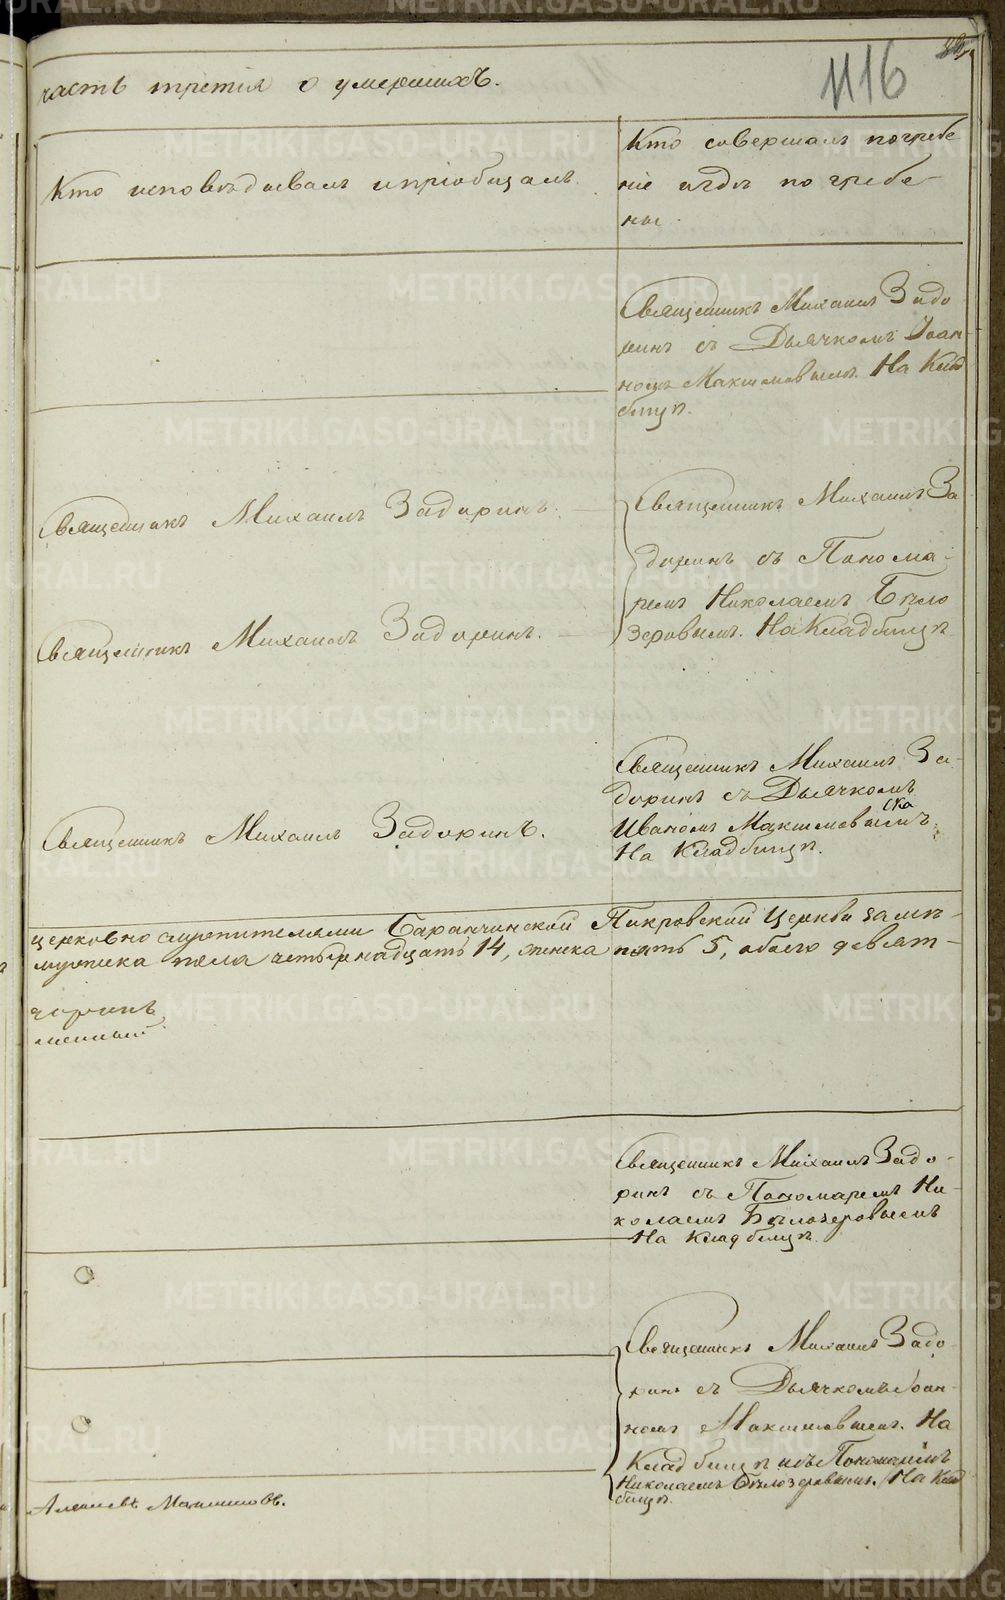 часть третія о умершихъ.
1116
Кто исповѣдывалъ и пріобщалъ.
Кто совершалъ погребе
ніе и гдѣ погребе-
ны.
Священникъ Михаилъ Задо
ринъ съ Дьячкомъ Іоан-
номъ Максимовымъ. На Клад
бищѣ.
Священникъ Михаилъ Задоринъ.
Священникъ Михаилъ За
доринъ съ Понома-
ремъ Николаемъ Бѣло
зеровымъ. На Кладбищѣ
Священникъ Михаилъ Задоринъ.
Священникъ Михаилъ За-
доринъ съ Дьячкомъ
Иваномъ Максимовымъ
На Кладбищѣ.
Священникъ Михаилъ Задоринъ.
церковно служителями Баранчинской Покровской Церкви замѣ-
мужеска пола четырнадцать 14, женска пять 5, обоего девят-
Священникъ Михаилъ Задо-
ринъ съ Пономаремъ Ни-
колаемъ Бѣлозеровымъ
На Кладбищѣ.
Священникъ Михаилъ Задо-
ринъ съ Дьячкомъ Іоан-
номъ Максимовымъ. На
Кладбищѣ съ Пономаремъ
Николаемъ Бѣлозеровымъ. На Клад
бищѣ.
Алексѣевъ Максимовъ.
METRIKI.GASO-URAL.RU